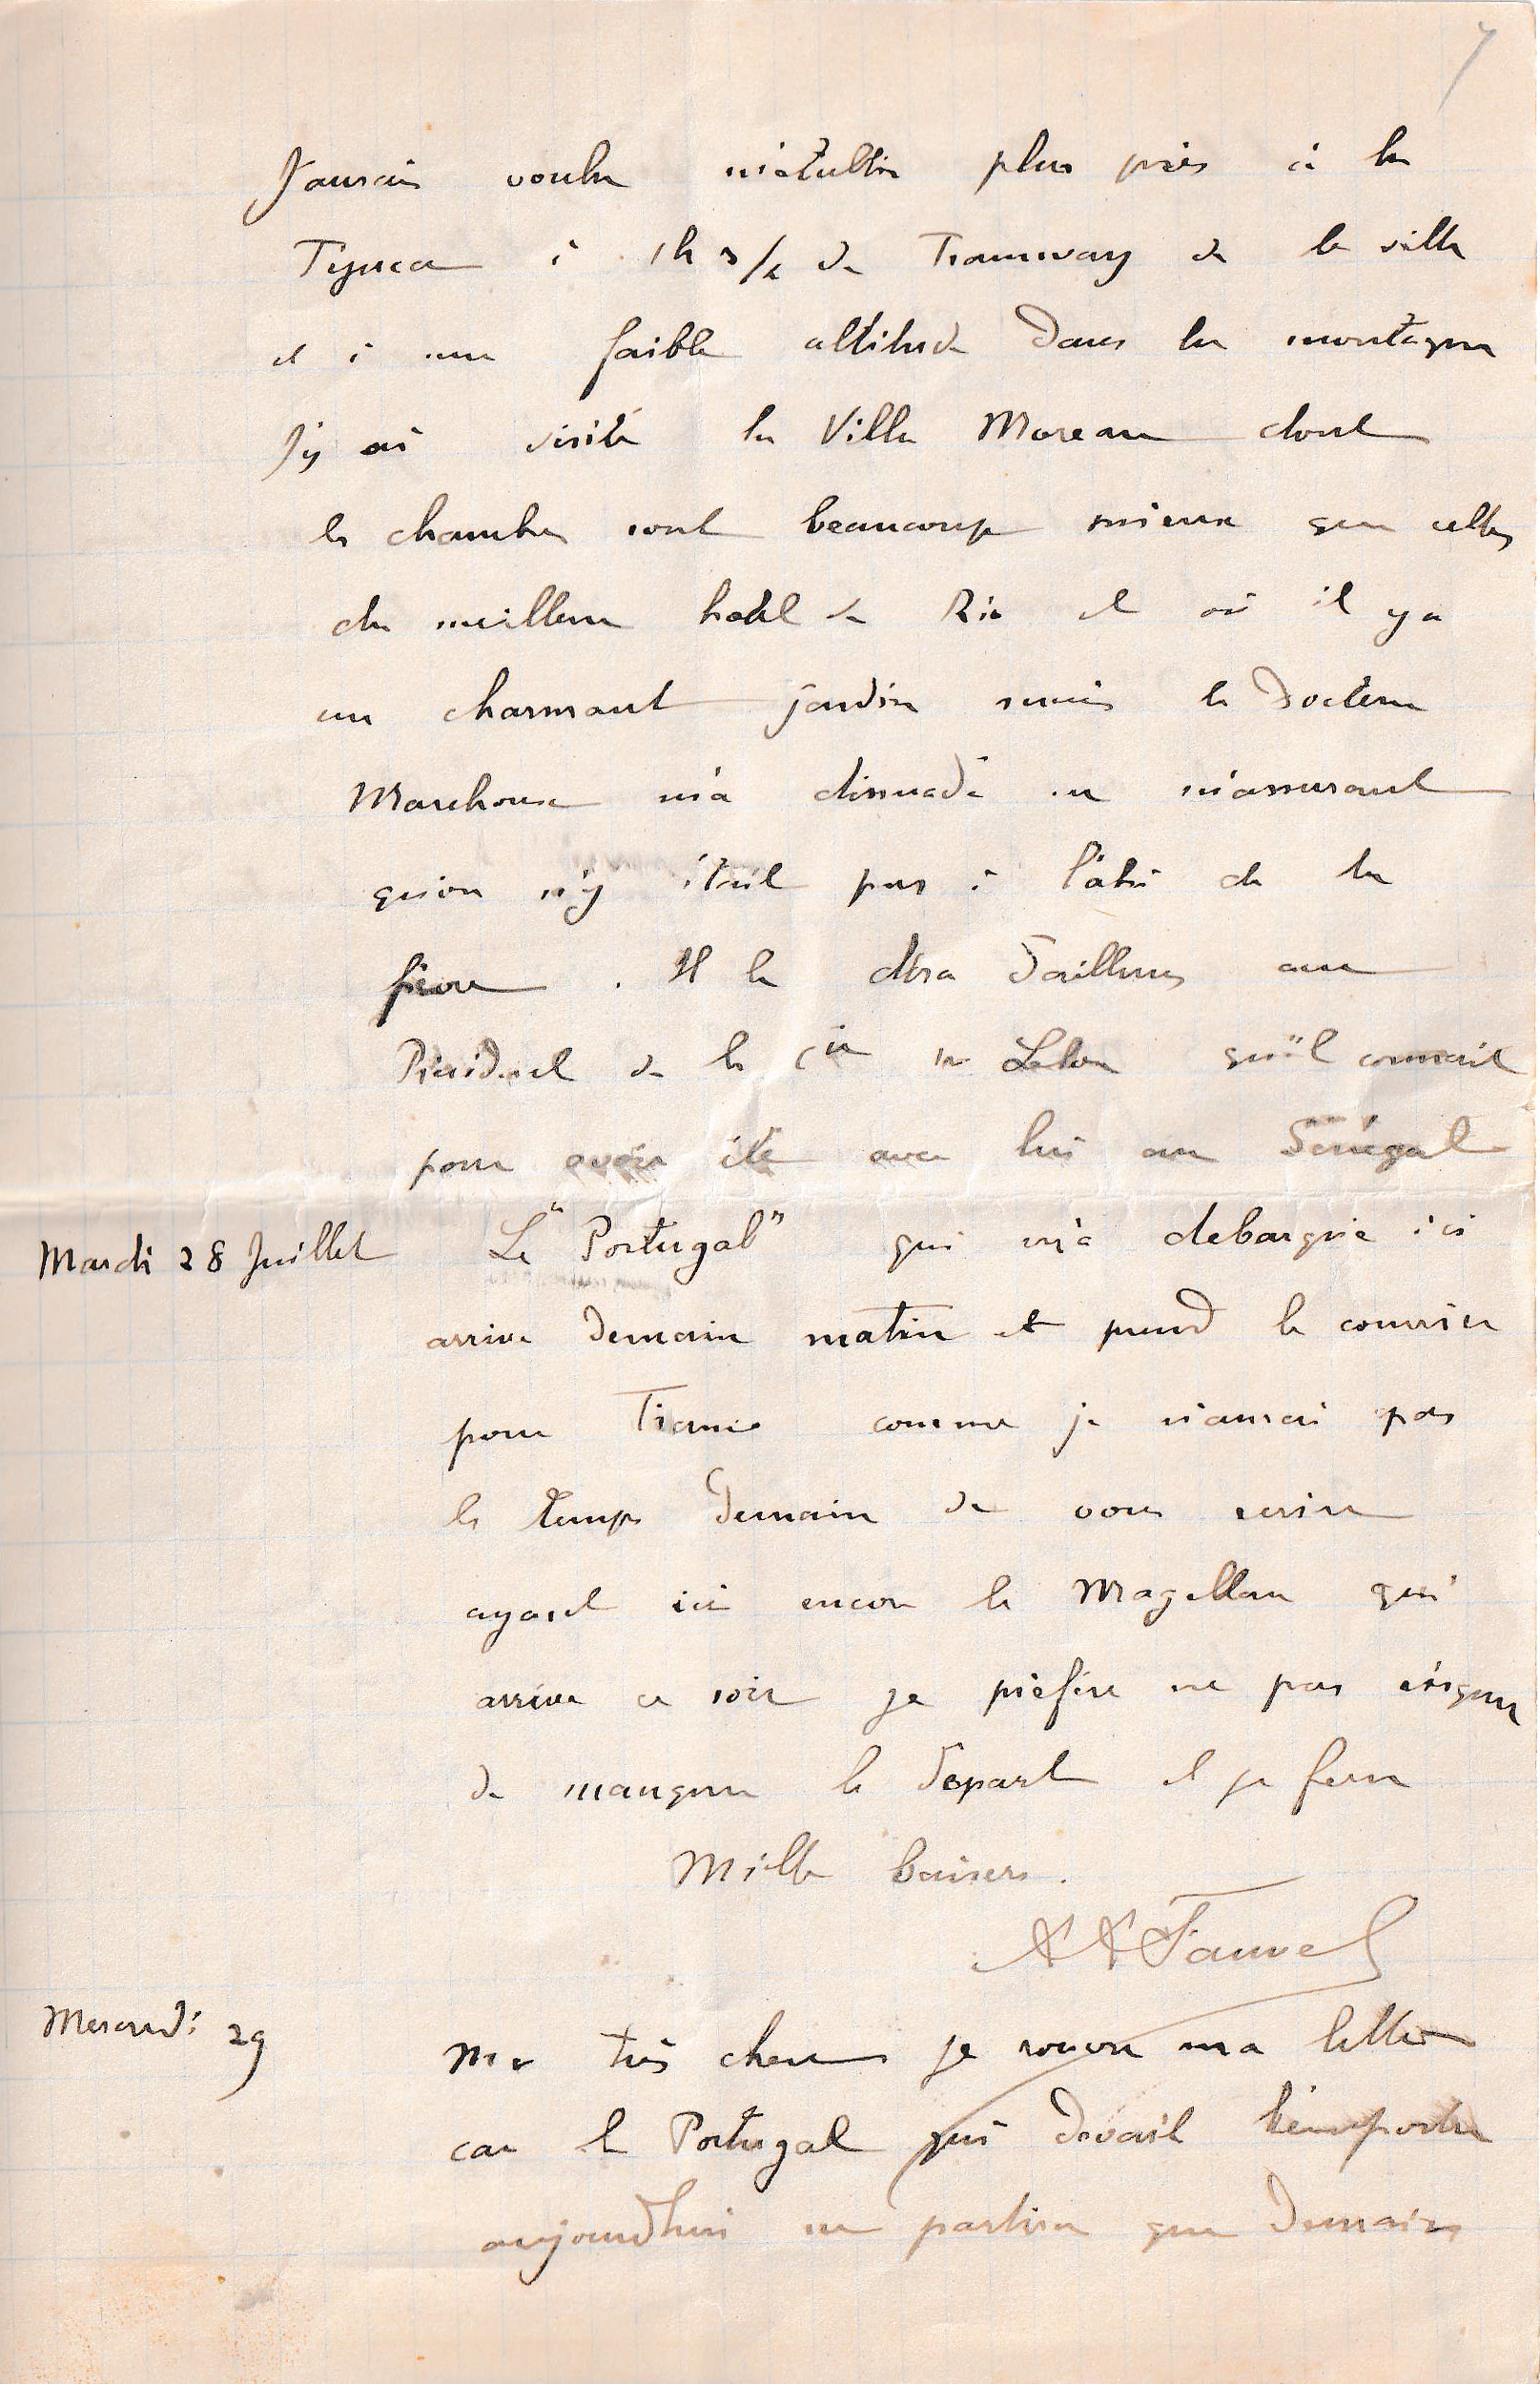 7
J'aurais voulu m'établir plus près à la
Tijuca à 1h 3/4 de Tramway de la ville
et à une faible altitude dans la montagne
J'y ai visité la Villa Moreau dont
les chambres sont beaucoup mieux que celles
du meilleur hotel de Rio et où il y a
un charmant jardin mais le Docteur
Marchoux m'a dissuadé en m'assurant
qu'on n'y était pas à l'abri de la
fièvre. Il le dira d'ailleurs au
Président de la Cie Mr Lebon qu'il connait
pour avoir été avec lui au Sénégal
Mardi 28 Juillet Le "Portugal" qui m'a debarqué ici
arrive demain matin et prend le courrier
pour France comme je n'aurai pas
le temps demain de vous ecrire
ayant ici encore le Magellan qui
arrive ce soir je préfère ne pas risquer
de manquer le départ et je ferme
Mille baisers.
AA Fauvel
Mercredi 29 Mes très chères je rouvre ma lettre
car le Portugal qui devait l'emporter
aujourdhui ne partira que demain